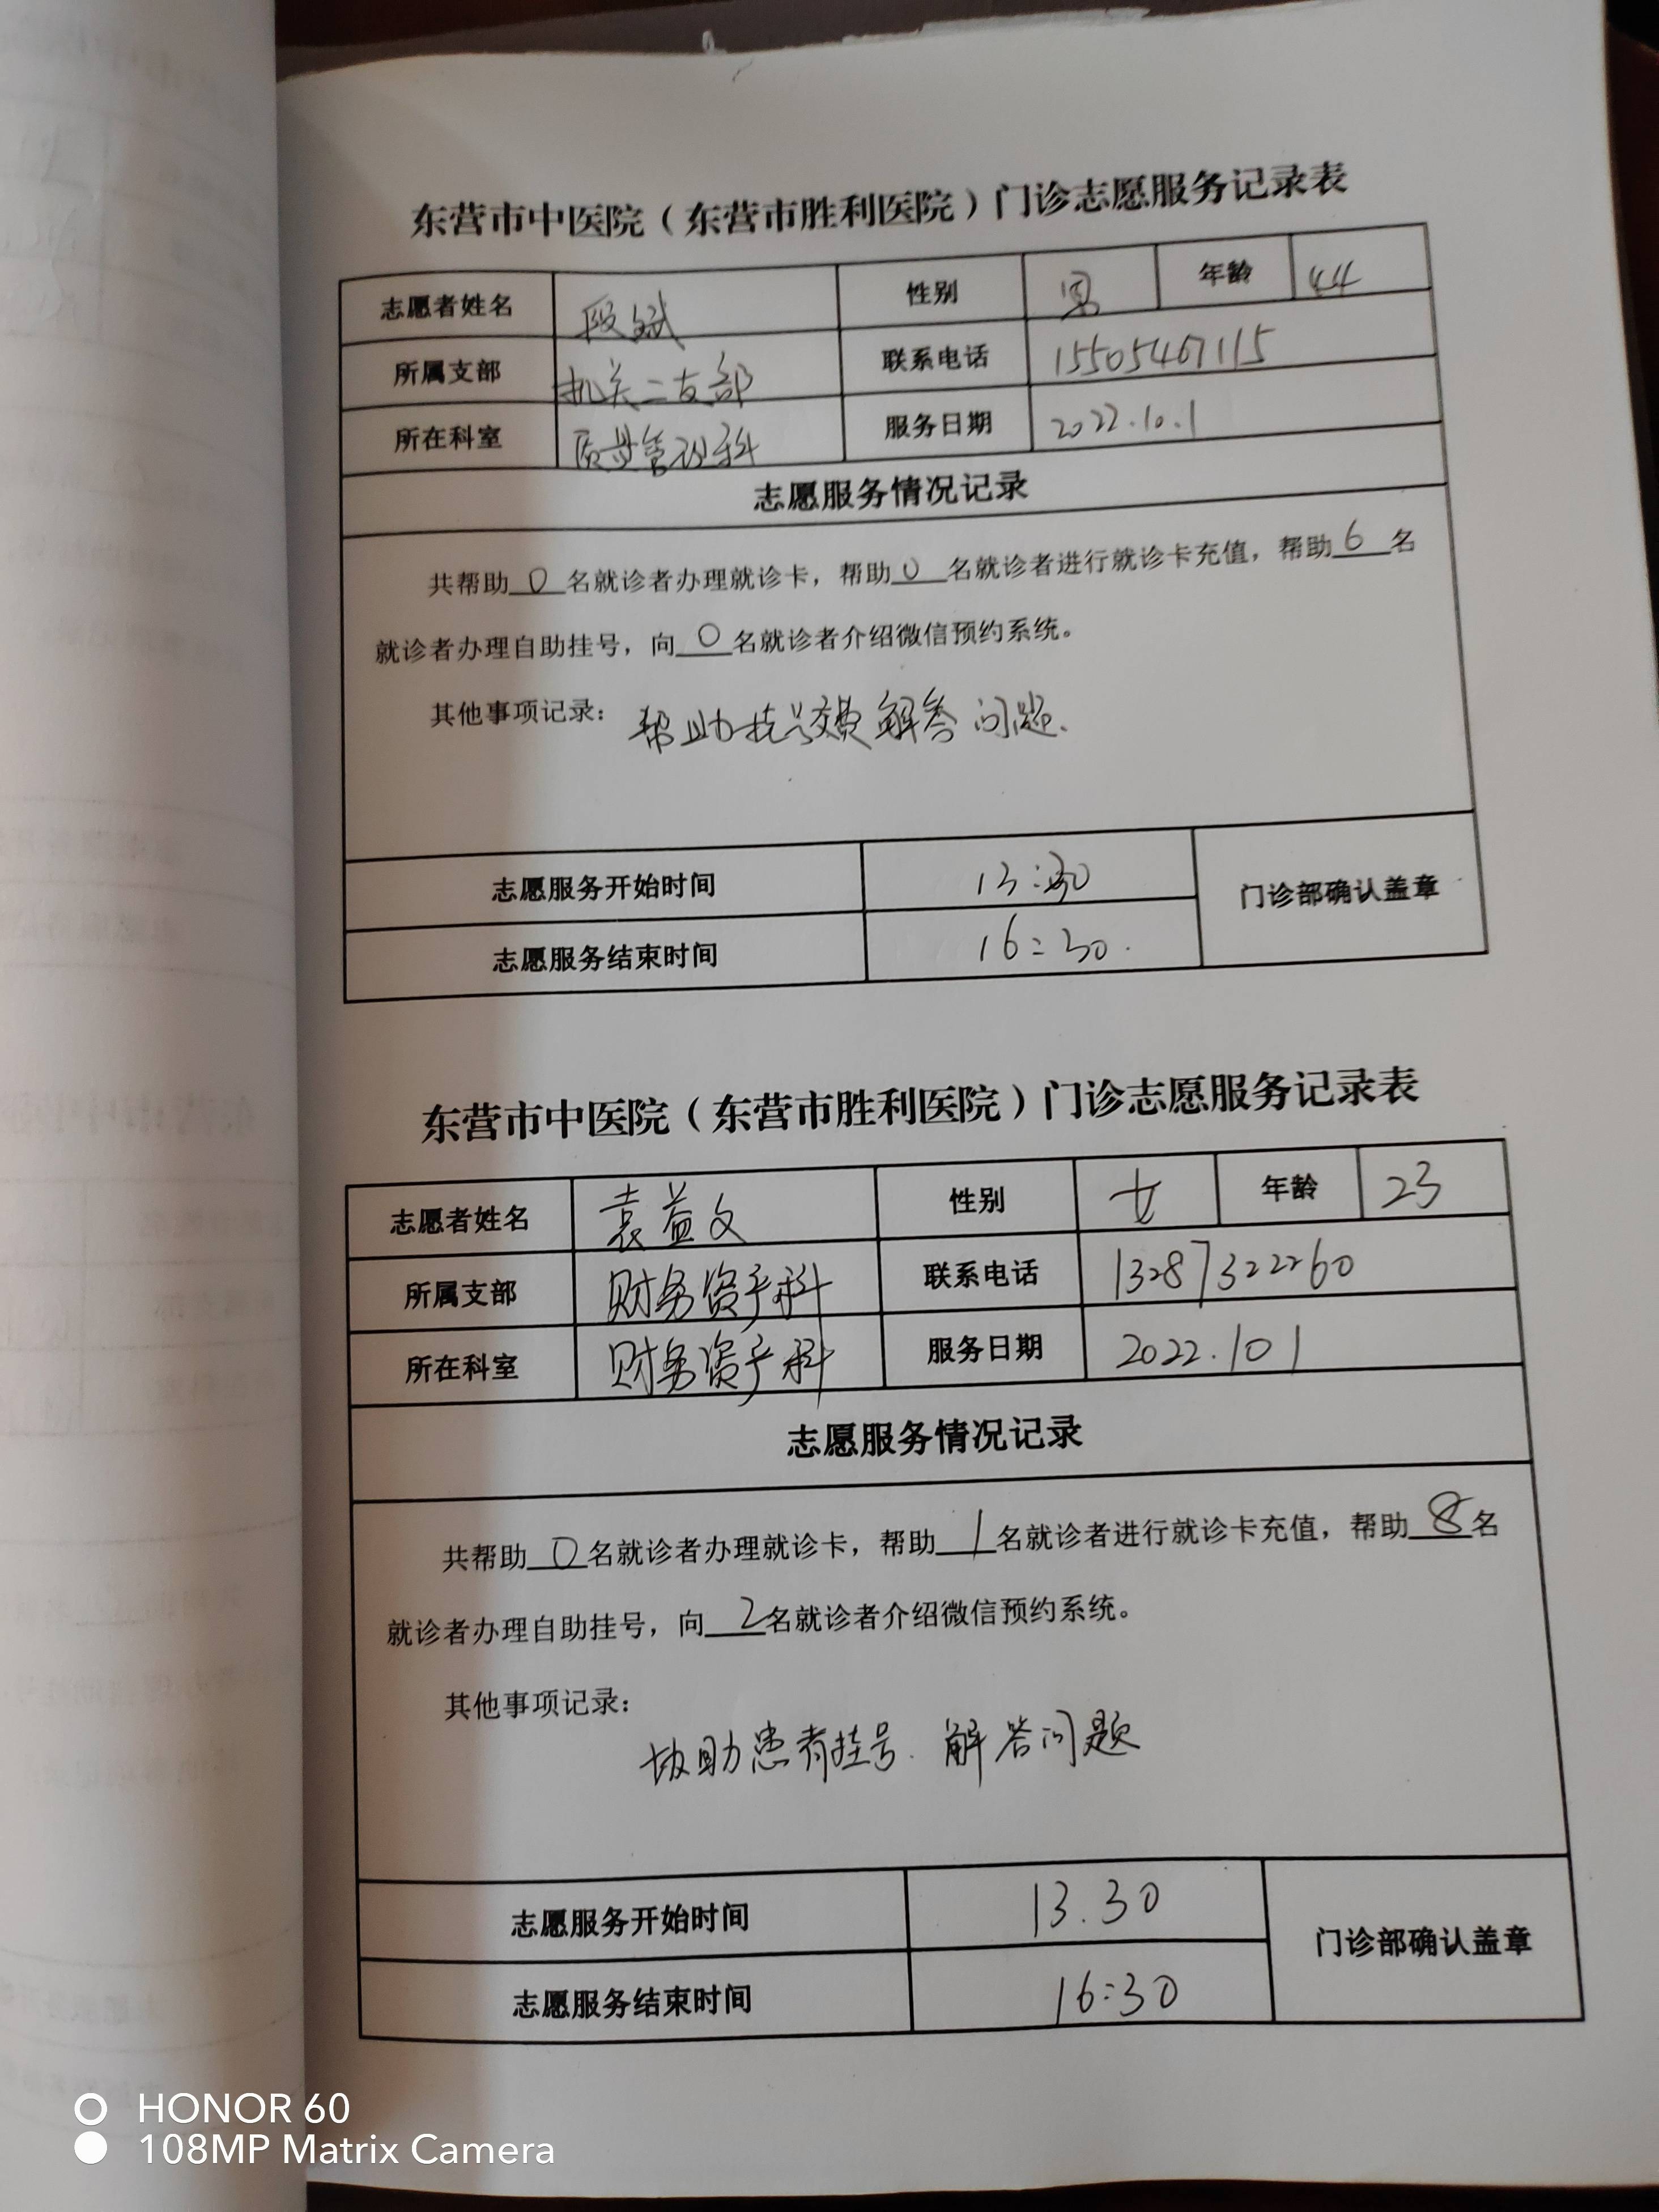 东营市中医院（东营市胜利医院）门诊志愿服务记录表
志愿者姓名 段斌 性别 男 年龄 44
所属支部 机关二支部 联系电话 15505467115
所在科室 质量管理科 服务日期 2022.10.1
志愿服务情况记录
共帮助0名就诊者办理就诊卡，帮助0名就诊者进行就诊卡充值，帮助6名
就诊者办理自助挂号，向0名就诊者介绍微信预约系统。
其他事项记录：帮助挂号缴费解答问题.
志愿服务开始时间 13:30 门诊部确认盖章
志愿服务结束时间 16:30.
东营市中医院（东营市胜利医院）门诊志愿服务记录表
志愿者姓名 袁益文 性别 女 年龄 23
所属支部 财务资产科 联系电话 13287322260
所在科室 财务资产科 服务日期 2022.101
志愿服务情况记录
共帮助0名就诊者办理就诊卡，帮助1名就诊者进行就诊卡充值，帮助8名
就诊者办理自助挂号，向2名就诊者介绍微信预约系统。
其他事项记录：
协助患者挂号.解答问题
志愿服务开始时间 13.30 门诊部确认盖章
志愿服务结束时间 16:30
HONOR 60
108MP Matrix Camera